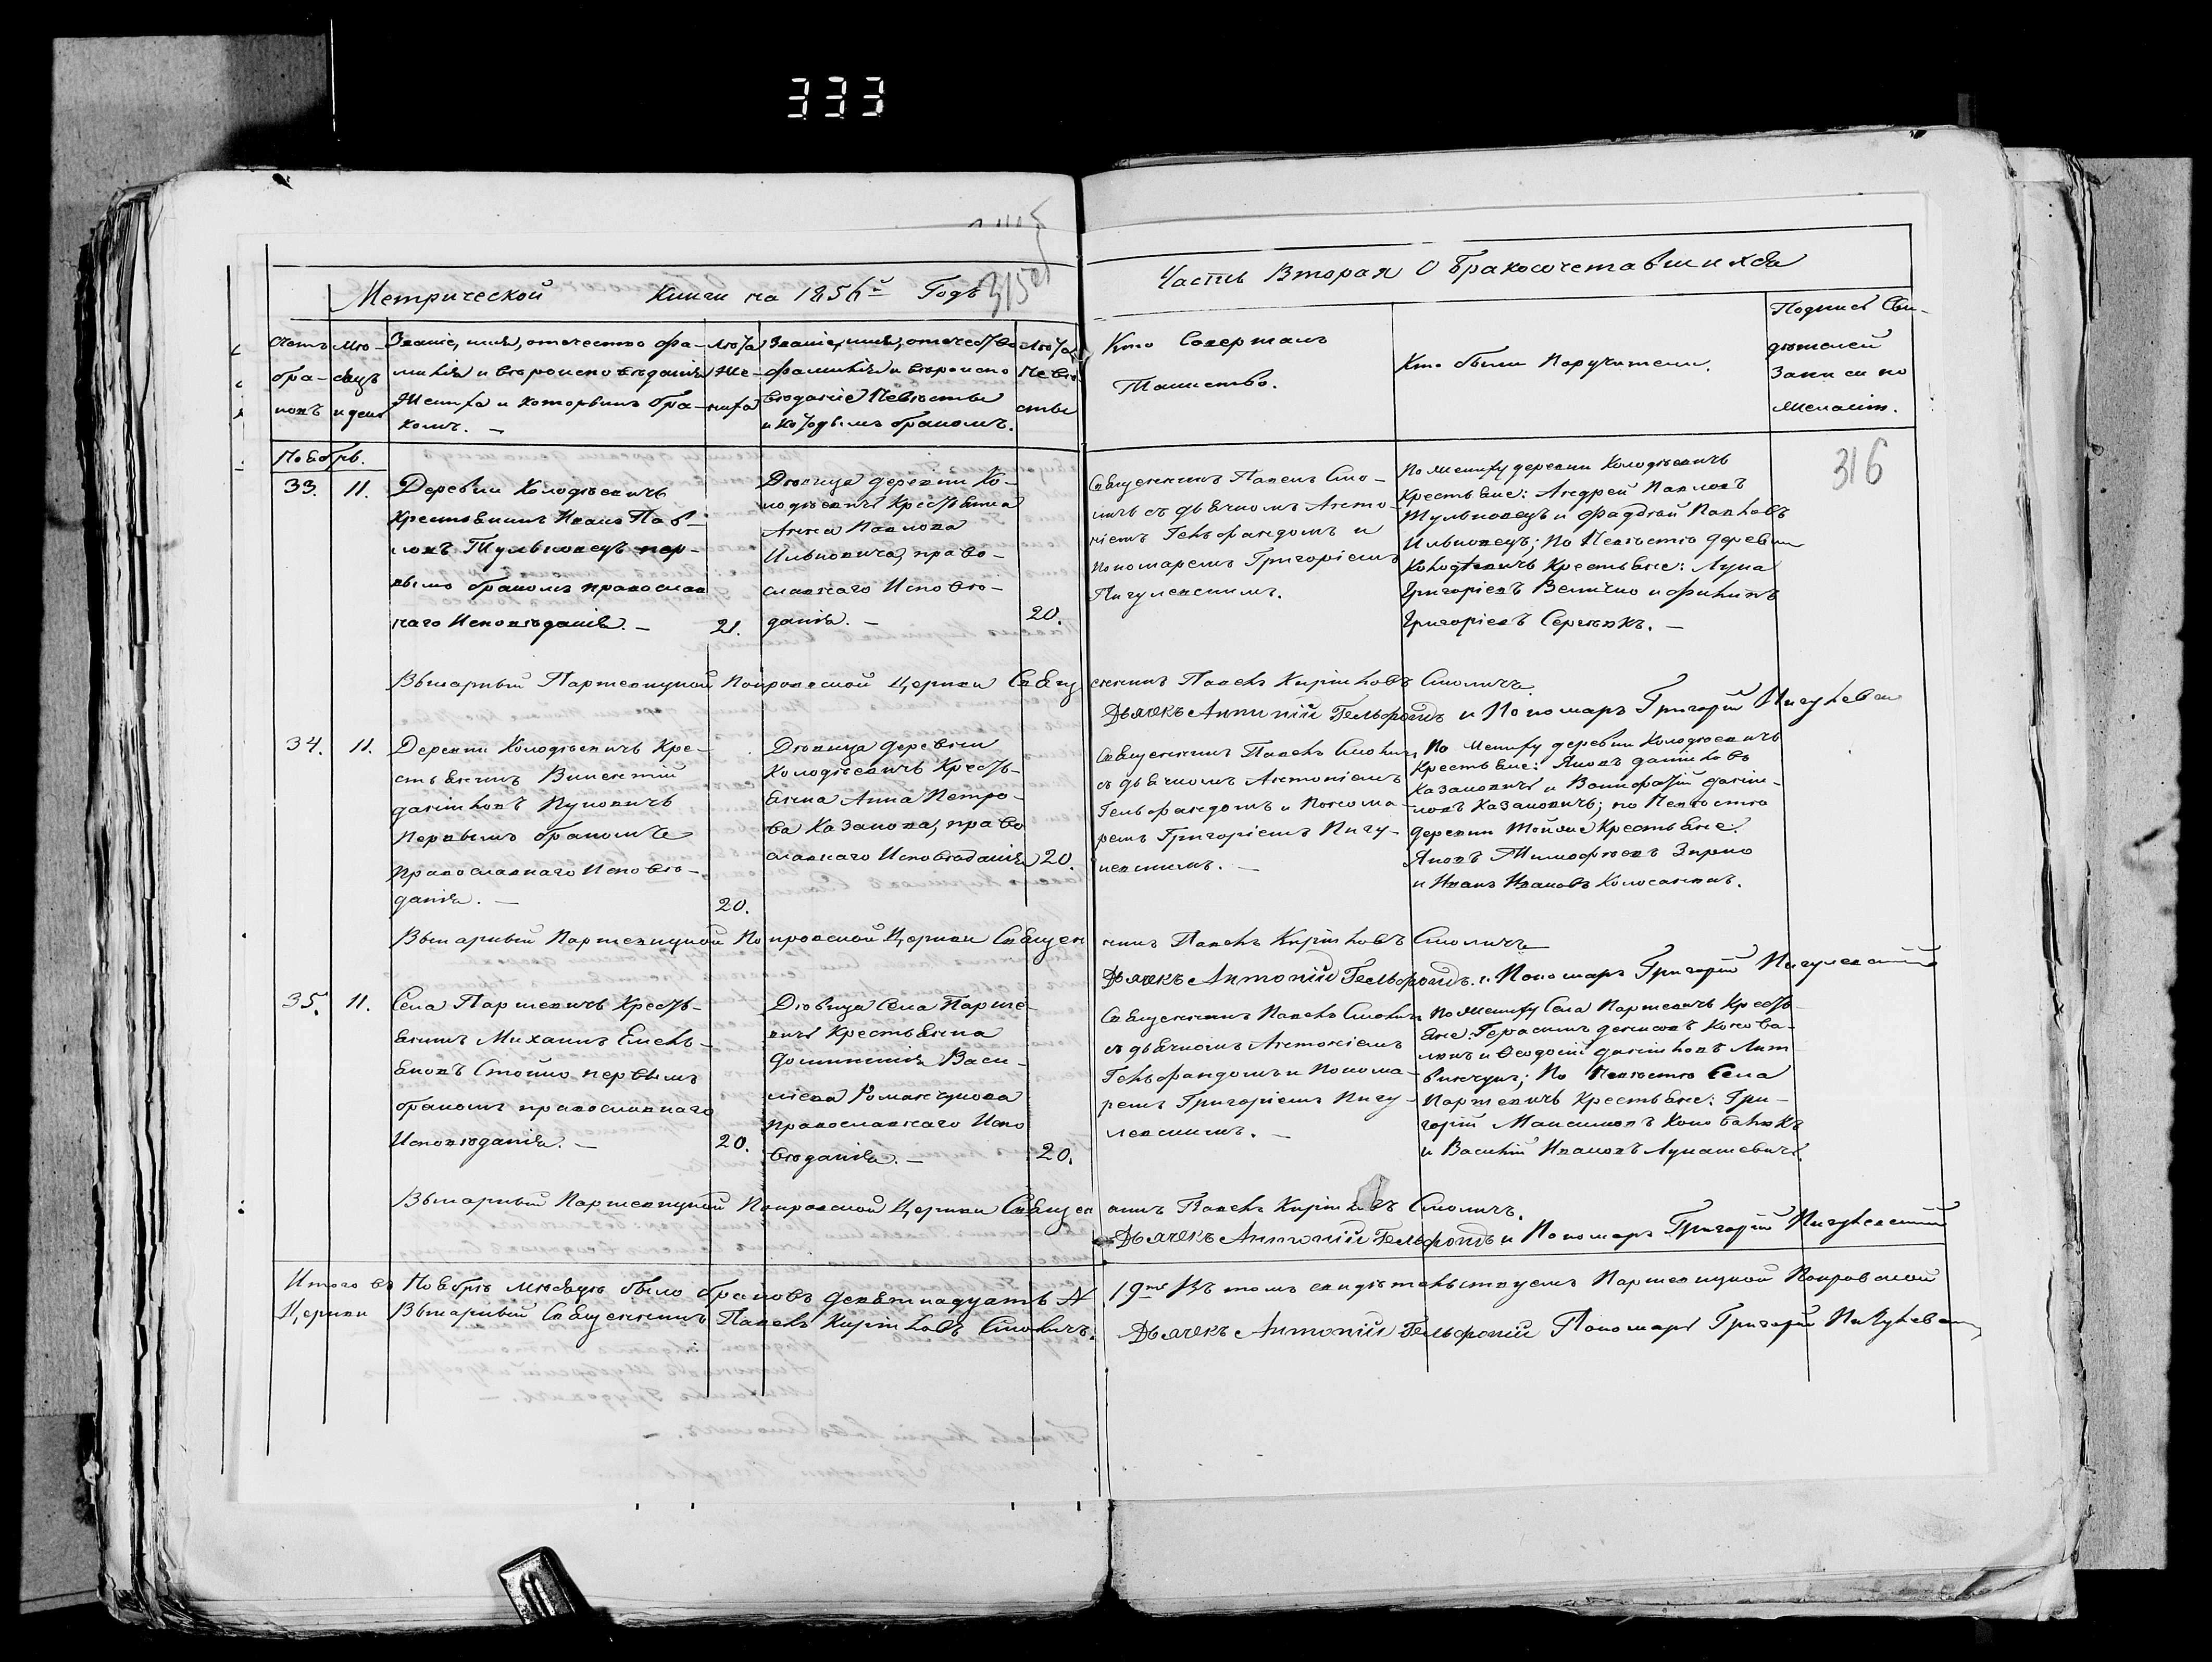 333
315об
Метрической Книги на 1856й Годъ
Часть Вторая О Бракосочетавшихся
Счетъ
бра-
ковъ
Мѣ-
сяцъ
и день
Званіе, имя, отечество фа-
милія и вѣроисповѣданія
Жениха и которымъ бра-
комъ. —
Лѣта
Же-
ниха
Званіе, имя, отечество
фамилія и вѣроиспо
вѣданіе Невѣсты
и которымъ бракомъ.
Лѣта
Невѣ
сты
Кто Совершалъ
Таинство.
Кто были Поручители.
Подпись Сви-
дѣтелей
Записи по
желанію.
316
Ноябрь.
33. 11.
Деревни Колодѣевичъ
Крестьянинъ Иванъ Пав-
ловъ Тульновецъ пер-
вымъ бракомъ православ
наго Исповѣданія. —
21.
Дѣвица деревни Ко-
лодѣевичъ Крестьянка
Анна Павлова
Ильковича, право-
славнаго Исповѣ-
данія. —
20.
Священникъ Павелъ Смо-
личъ съ дьячкомъ Анто-
ніемъ Гельфандомъ и
Пономаремъ Григоріемъ
Пигулевскимъ.
По Жениху деревни Колодѣевичъ
Крестьяне: Андрей Павловъ
Тульновецъ и Фаддей Павловъ
Ильковецъ; По Невѣстѣ деревни
Колодѣевичъ Крестьяне: Лука
Григорьевъ Величко и Филипъ
Григорьевъ Сергѣюкъ. —
Викарный Паршевицкой Покровской Церкви Священникъ Павелъ Кириловъ Смоличъ.
Дьячекъ Антоній Гельфондъ и Пономарь Григорій Пигулевск
34. 11.
Деревни Колодѣевичъ Кре-
стьянинъ Викентій
Даниловъ Куновичъ
Первымъ бракомъ
Православнаго Исповѣ-
данія. —
20.
Дѣвица деревни
Колодѣевичъ Кресть-
янка Анна Петро-
ва Казакова, право
славнаго Исповѣданія
20.
Священникъ Павелъ Смоличъ
съ дьячкомъ Антоніемъ
Гельфандомъ и Понома-
ремъ Григоріемъ Пигу-
левскимъ. —
По Жениху деревни Колодѣевичъ
Крестьяне: Яковъ Даниловъ
Казаковичъ и Вонифатій Дани-
ловъ Казаковичъ; по Невѣстѣ
деревни Тойже Крестьяне:
Яковъ Тимофѣевъ Зирко
и Иванъ Ивановъ Колосанкинъ.
Викарный Паршевицкой Покровской Церкви Священникъ Павелъ Кириловъ Смоличъ
Дьячекъ Антоній Гельфондъ. и Пономарь Григорій Пигулевскій
35. 11.
Села Паршевичъ Кресть-
янинъ Михаилъ Емель-
яновъ Стойко первымъ
бракомъ православнаго
Исповѣданія. —
20.
Дѣвица Села Парше-
вичъ Крестьянка
Доминикія Васи-
ліева Романчукова
Православнаго Испо
вѣданія. —
20.
Священникъ Павелъ Смоличъ
съ дьячкомъ Антоніемъ
Гельфандомъ и Понома-
ремъ Григоріемъ Пигу-
левскимъ. —
По Жениху Села Паршевичъ Кресть
яне: Герасимъ Денисовъ Конова-
люкъ и Ѳеодосій Даниловъ Лит
винчукъ; По Невѣстѣ Села
Паршевичъ Крестьяне: Гри-
горій Максимовъ Конобалюкъ
и Василій Ивановъ Лукашевичъ.
Викарный Паршевицкой Покровской Церкви Священникъ Павелъ Кириловъ Смоличъ.
Дьячекъ Антоній Гельфондъ и Пономарь Григорій Пигулевскій
Итого въ Ноябрѣ мѣсяцѣ было браковъ девятнадцать № 19ть Въ томъ свидѣтельствуемъ Паршевицкой Покровской
Церкви Викарный Священникъ Павелъ Кириловъ Смоличъ.
Дьячекъ Антоній Гельфоній Пономарь Григорій Пигулевск